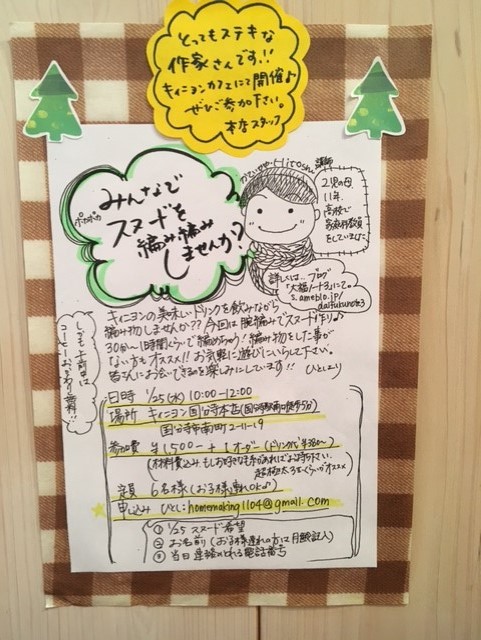 とってもステキな
作家さんです!!
キィニョンカフェにて開催♪
ぜひご参加下さい。
本店スタッフ
みんなで
スヌードを
編み編み
しませんか?
講師
2児の母、
11年、
高校で
家庭科教員
をしていました
詳しくは…ブログ
「大福ノート3」にて。
s.ameblo.jp/
daifukunote3
キィニヨンの美味しいドリンクを飲みながら
編み物しませんか?? 今回は腕編みでスヌード作り♪
30分〜1時間くらいで編めちゃう!編み物をした事が
ない方もオススメ!! お気軽に遊びにいらして下さい。
皆さんにお会いできるのを楽しみにしています!! ひとしより
しかも午前中は
コーヒーおかわり無料!!
日時 1/25(水) 10:00-12:00
場所 キィニヨン国分寺本店(国分寺駅南口徒歩5分)
国分寺市南町2-11-19
参加費 ¥1,500- + 1オーダー(ドリンク代¥380〜)
(材料費込み。もしお好きな毛糸があればお持ち下さい。
超極太3玉くらいがオススメ)
定員 6名様(お子様連れOK♪)
申し込み ひとし: homemaking1104@gmail.com
① 1/25 スヌード希望
② お名前(お子様連れの方は月齢記入)
③ 当日連絡のとれる電話番号